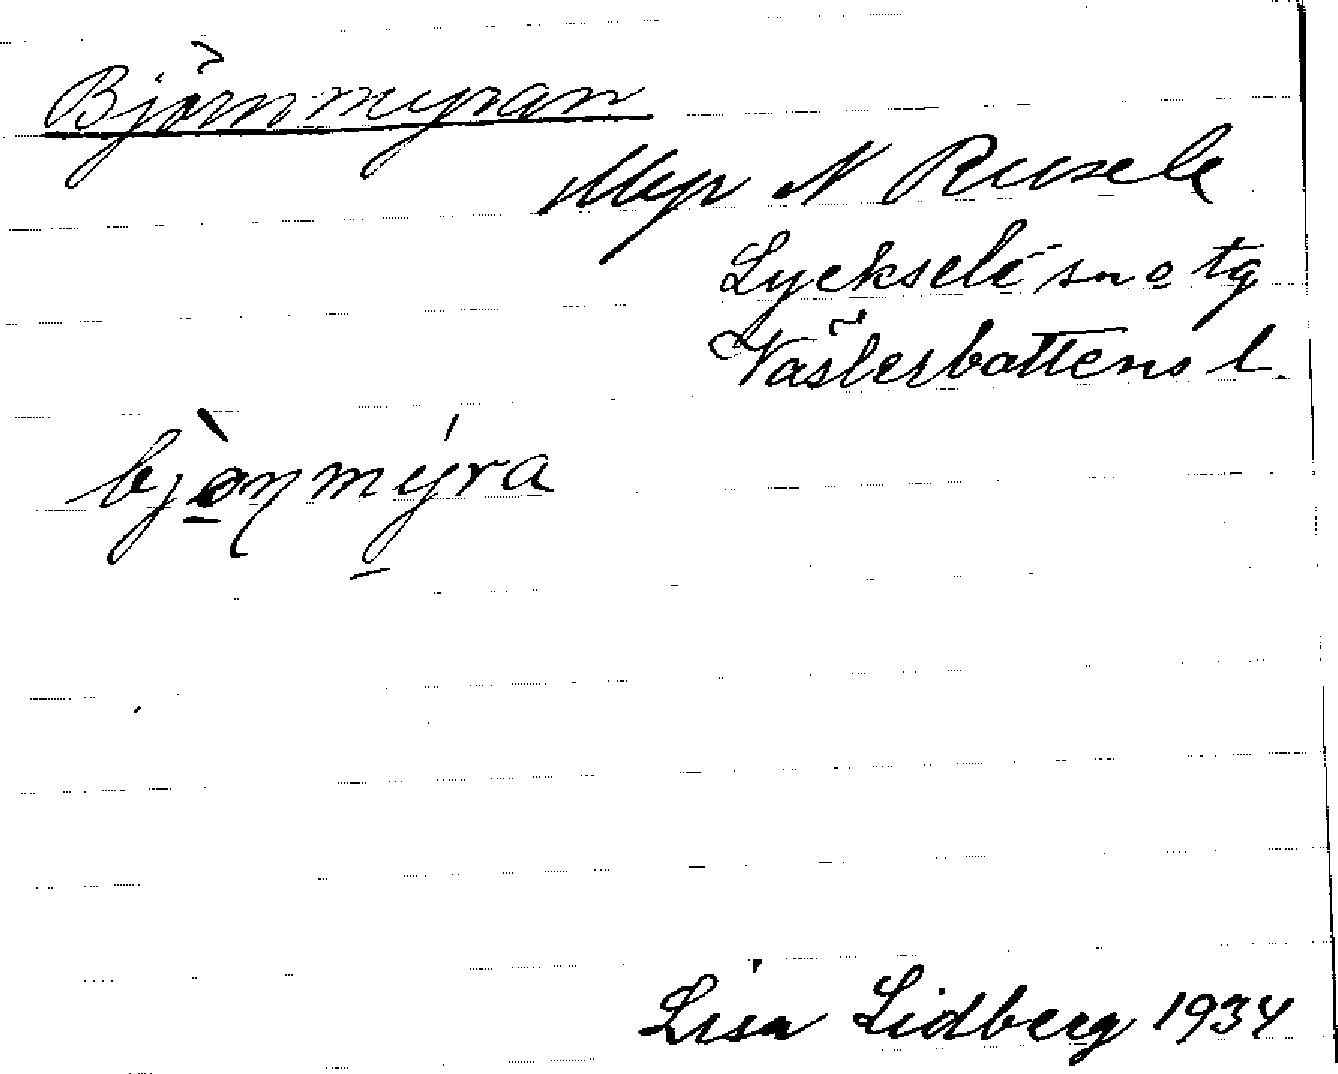 Björnmyran
Myr N Rusele
Lycksele sn o tg
Västerbottens l.
bjǫ̀ṇmýra
Lisa Lidberg 1934